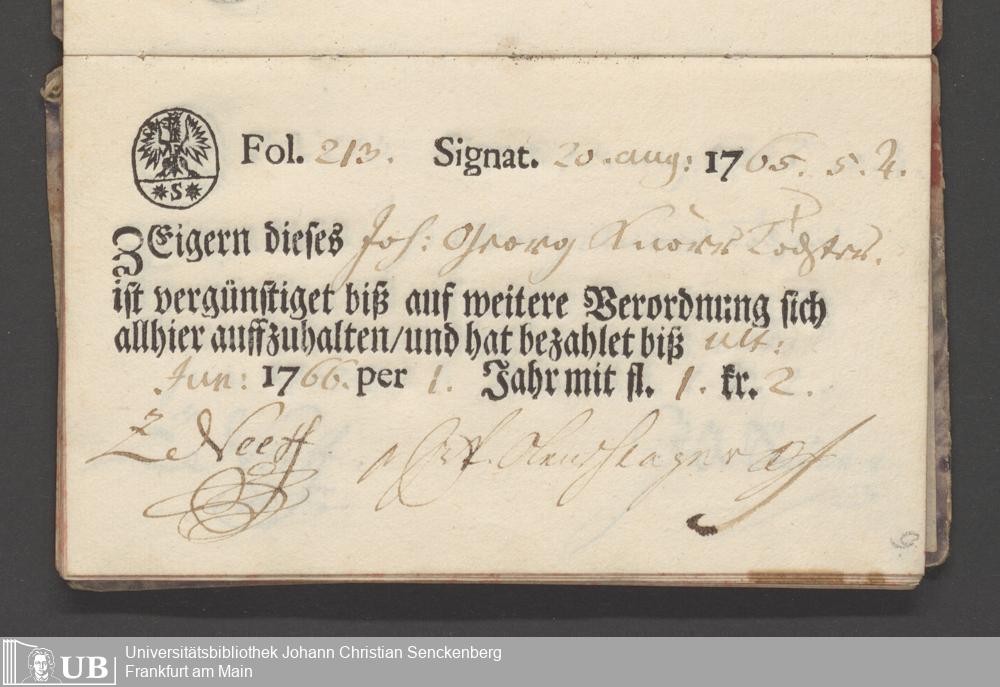 S
Fol. 213. Signat. 20. aug: 1765. 5. 4.
ZEigern dieses Joh: Georg Knörr Tochter.
ist vergünstiget biß auf weitere Verordnung sich
allhier auffzuhalten/und hat bezahlet biß ult:
Jun: 1766. per 1. Jahr mit fl. 1. kr. 2.
Neeff
9
UB
Universitätsbibliothek Johann Christian Senckenberg
Frankfurt am Main